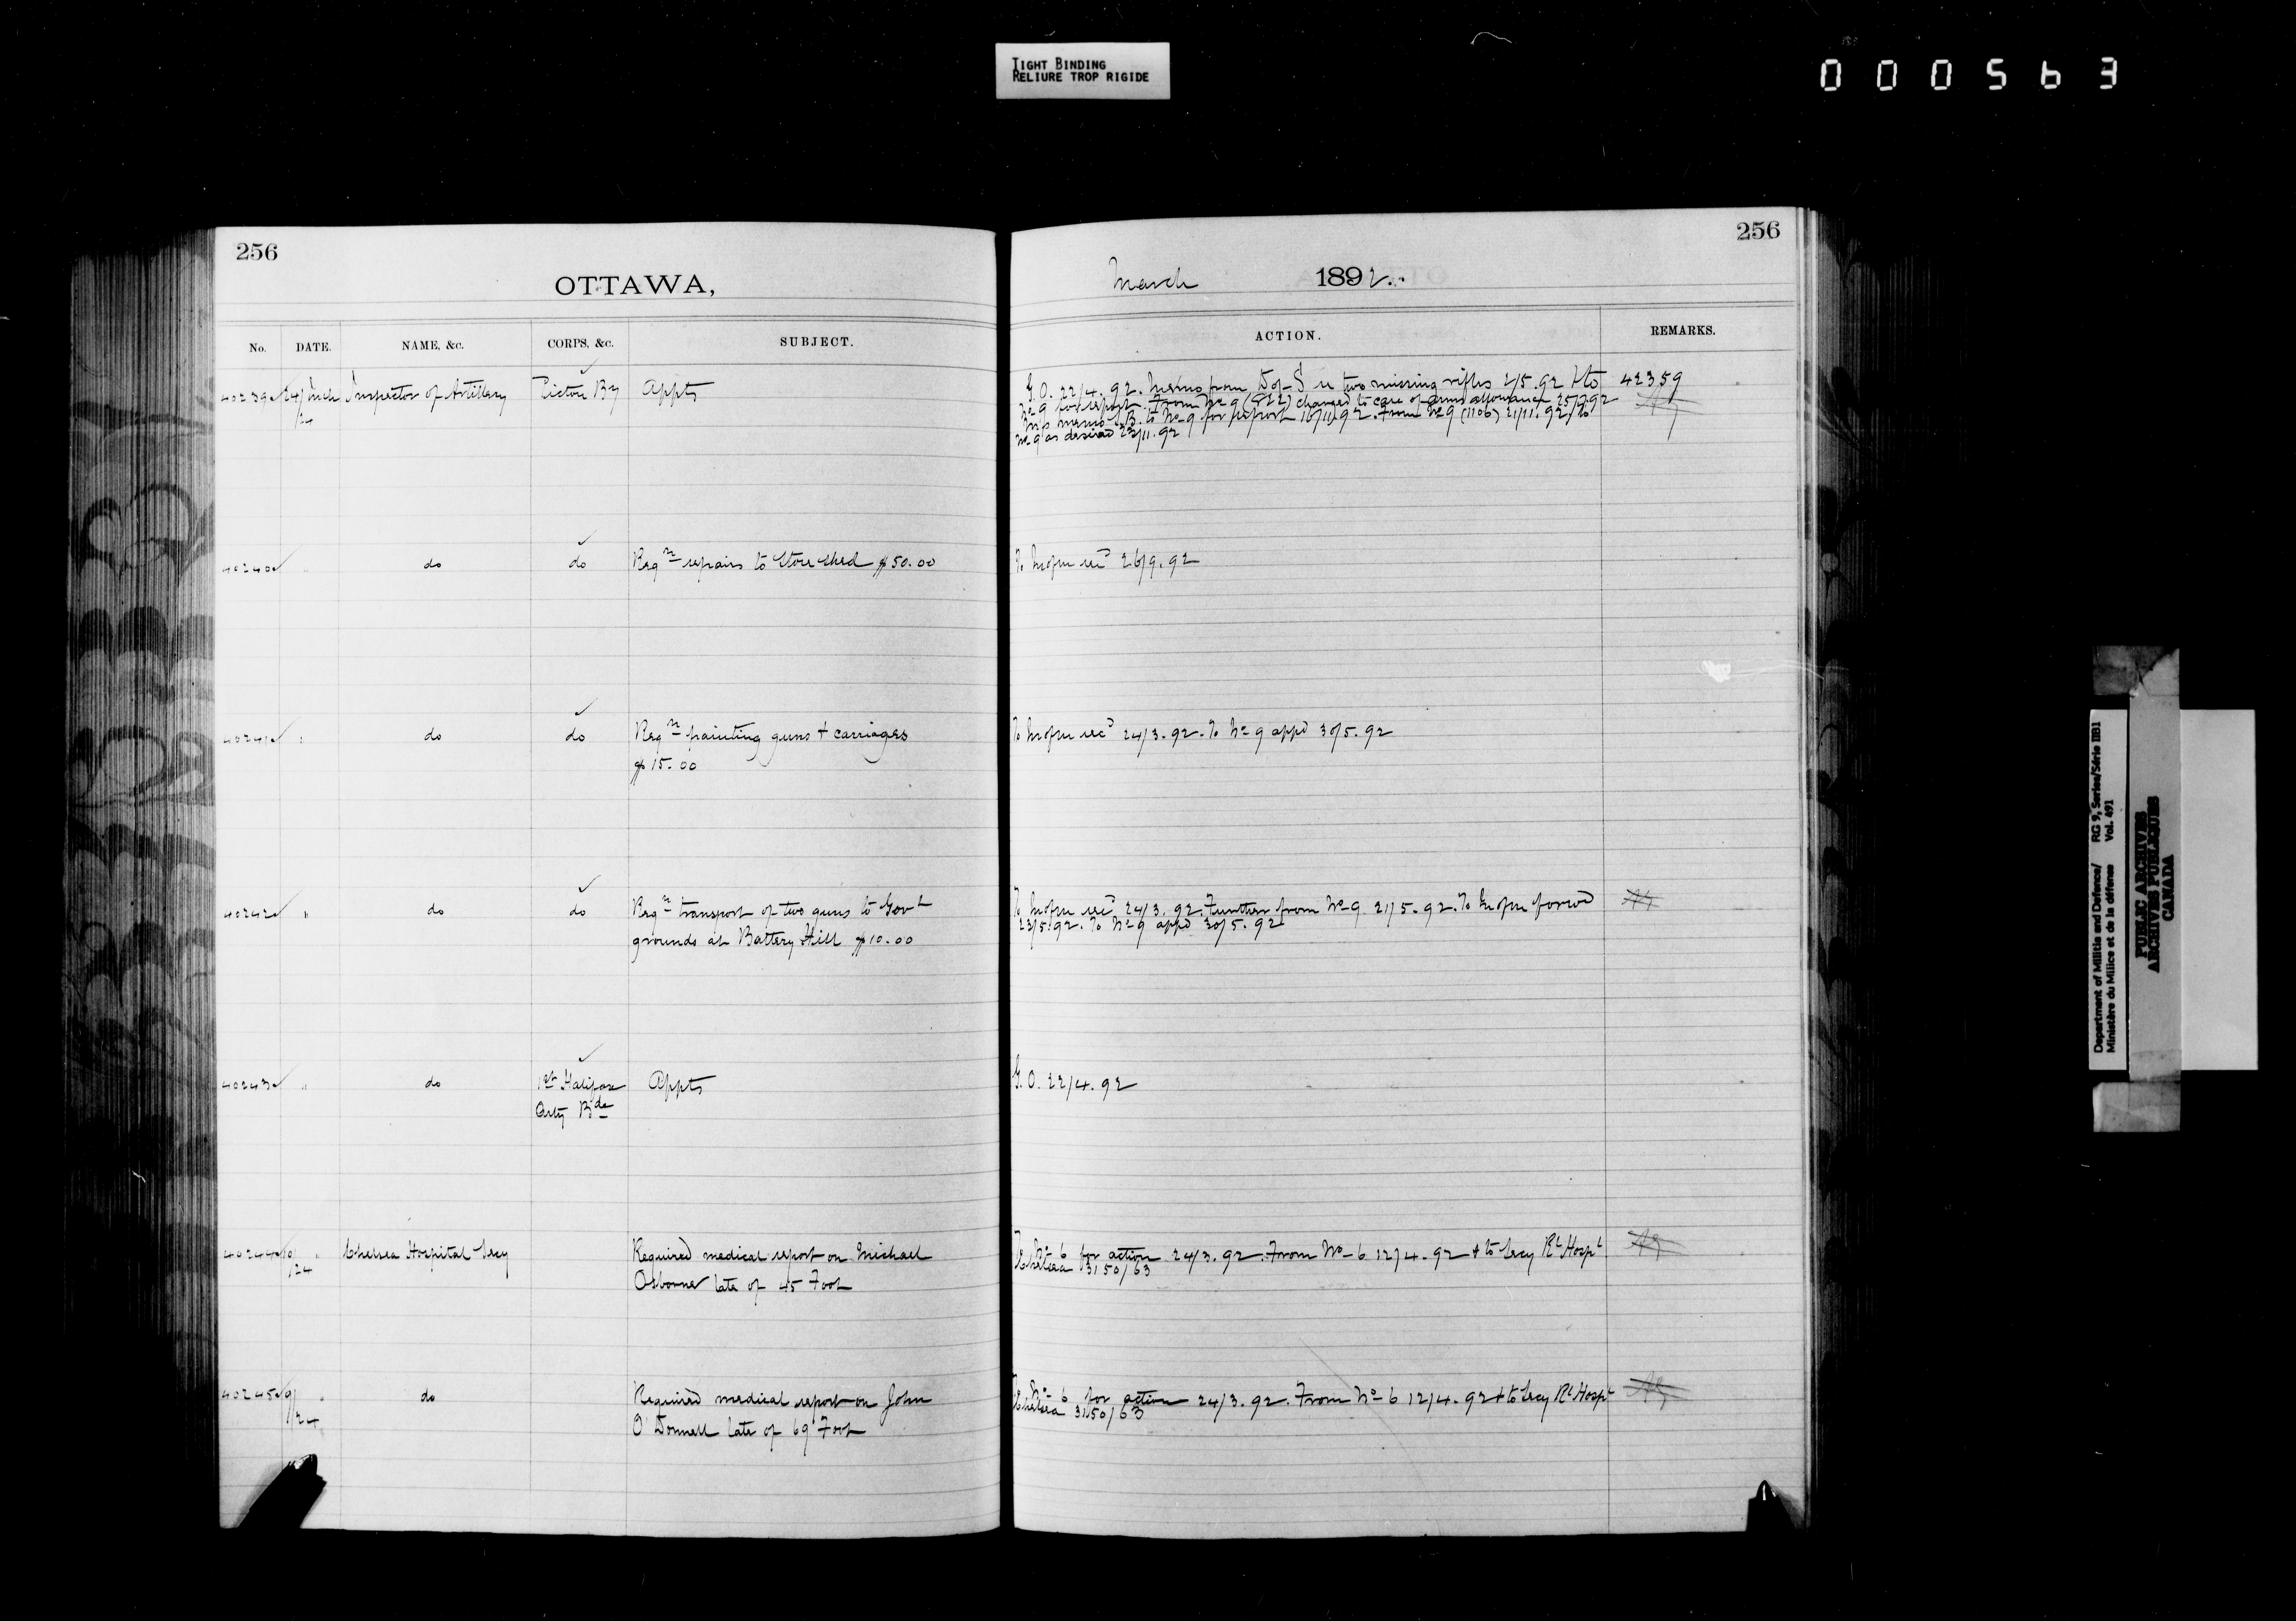 TIGHT BINDING
RELIURE TROP RIGIDE
000563
256
OTTAWA,
No. DATE. NAME, &c. CORPS, &c. SUBJECT.
40239 24/Mch Inspector of Artillery Pictou By Appts
/24
40240 " do do Reqn repairs to Store Shed $50.00
40241 " do do Reqn painting guns + carriages
$15.00
40242 " do do Reqn transport of two guns to Govt
grounds at Battery Hill $10.00
40243 " do 1st Halifax Appts
Arty Bde
40244 " Chelsea Hospital Secy Required medical report on Michael
/24 Osborne late of 45 Foot
40245 9/ " do Required medical report on John
/24 O'Donnell late of 69 Foot
256
March 1892.
ACTION. REMARKS.
G.O. 22/4.92. Memo from D of S re two missing rifles 2/5.92 & to 42359
No 9 for report. From No 9 changed to care of arms allowance 25/7.92
memo B. to No 9 for report 16/11.92. From No 9 (1106) 21/11.92. To
No 9 as desired 23/11.92
To 26/9.92
To 24/3.92. To No 9 appd 30/5.92
To 24/3.92. Further from No 9 21/5.92. To forwd
23/5.92. To No 9 appd 30/5.92
G.O. 22/4.92
To No 6 for action 24/3.92. From No 6 12/4.92 + to Secy Rl Hospl
Chelsea 3150/63
To No 6 for action 24/3.92. From No 6 12/4.92 + to Secy Rl Hospl
Chelsea 3150/63
Department of Militia and Defence/ RG 9, Series/Série IIB1
Ministère du Milice et de la défense Vol. 491
PUBLIC ARCHIVES
ARCHIVES PUBLIQUES
CANADA